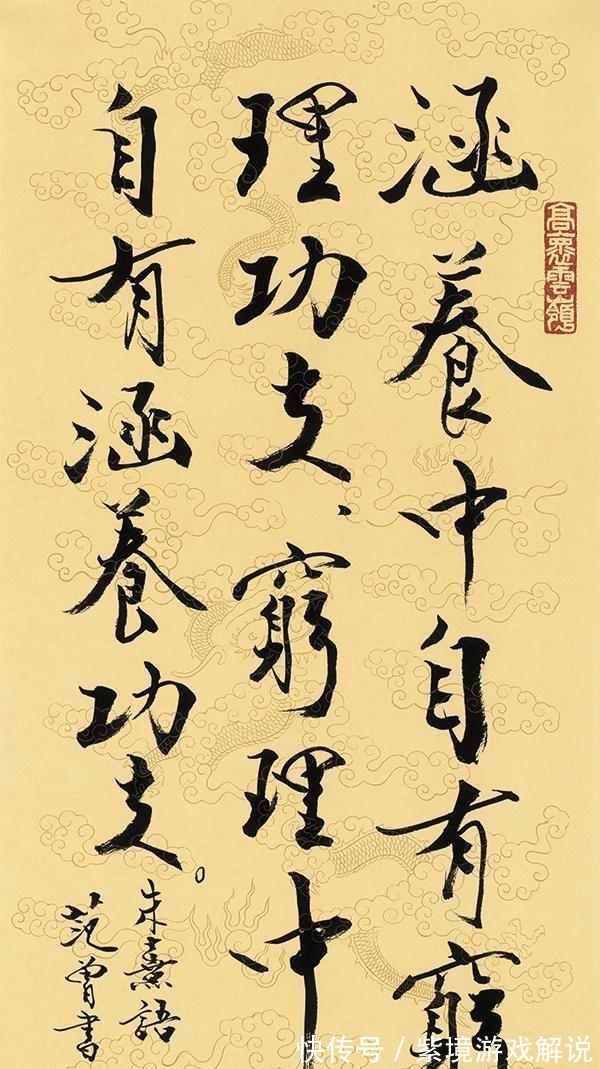 涵養中自有窮
理功夫、窮理中
自有涵養功夫。
朱熹語
范曾書
快传号 / 紫境游戏解说